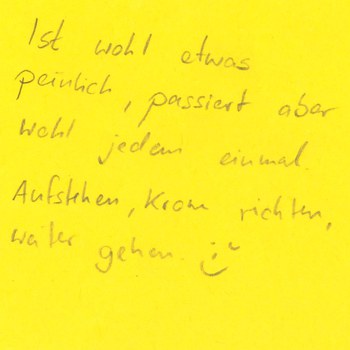 Ist wohl etwas
peinlich, passiert aber
wohl jedem einmal.
Aufstehen, Krone richten,
weiter gehen. :)